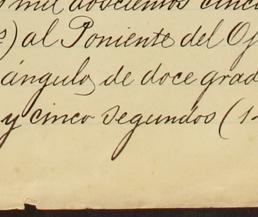 mil doscientos cinc
) al Poniente del Oj
ángulo, de doce grad
y cinco segundos (1